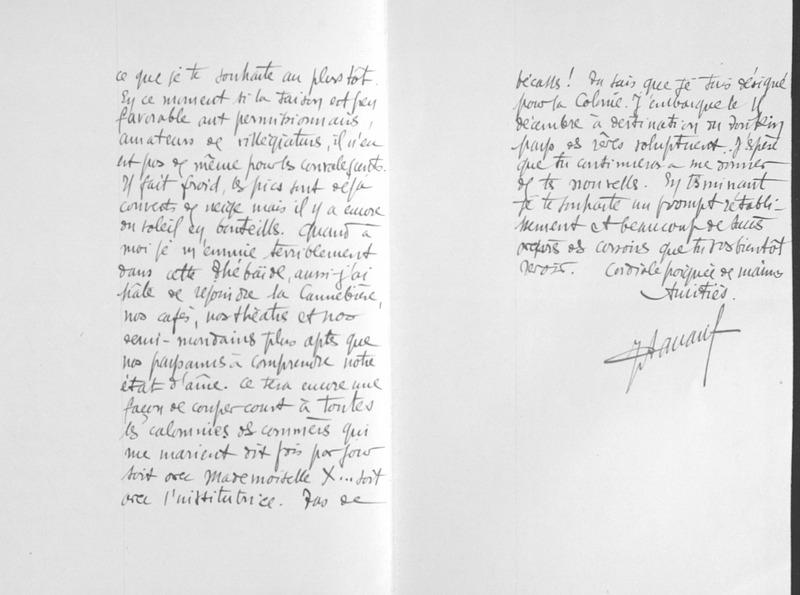 ce que je te souhaite au plus tôt.
En ce moment si la saison est peu
favorable aux permissionnaires,
amateurs de villégiature, il n'en
est pas de même pour les convalescents.
Il fait froid, les pics sont déjà
couverts de neige mais il y a encore
du soleil en bouteille. Quand à
moi je m'ennuie terriblement
dans cette Thébaïde, aussi j'ai
hâte de rejoindre la Cannebière,
nos cafés, nos théâtres et nos
demi-mondaines plus aptes que
nos paysannes à comprendre notre
état d'âme. Ce sera encore une
façon de couper court à toutes
les calomnies des commères qui
me marient dix fois par jour
soit avec Mademoiselle X... soit
avec l'institutrice. Pas de
bécasses! Tu sais que je suis désigné
pour la Colonie. J'embarque le 11
décembre à destination du Tonkin
pays des rêves voluptueux. J'espère
que tu continueras à me donner
de tes nouvelles. En terminant
je te souhaite un prompt rétablis-
sement et beaucoup de succès
auprès des que tu vas bientôt
revoir. Cordiale poignée de mains
Amitiés.